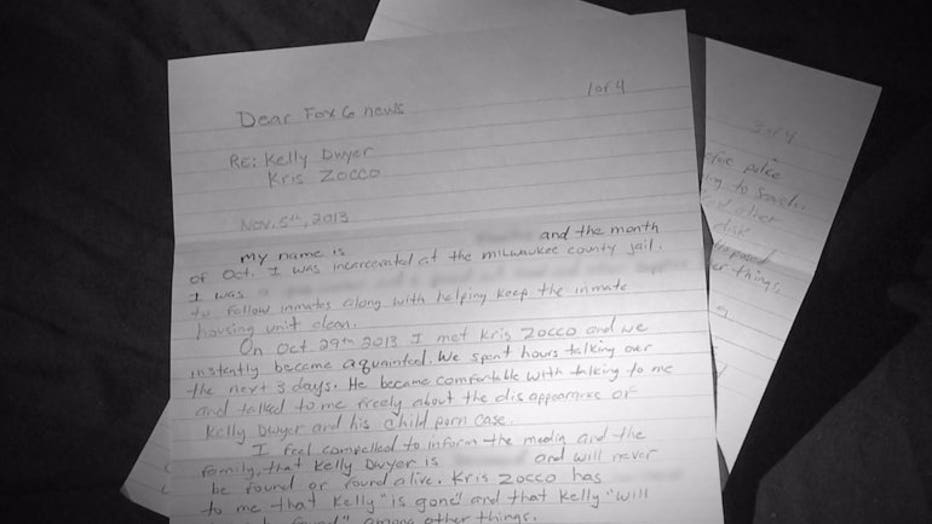 1 of 4
Dear Fox 6 news
RE: Kelly Dwyer
Kris Zocco
Nov. 5th, 2013
my name is and the month
of Oct. I was incarcerated at the milwaukee county jail.
I was
to follow inmates along with helping keep the inmate
housing unit clean.
On Oct 29th 2013 I met Kris Zocco and we
instently became aquainted. We spent hours talking over
the next 3 days. He became comfortable with talking to me
and talked to me freely about the disappearance of
Kelly Dwyer and his child porn case.
I feel compelled to inform the media and the
family, that Kelly Dwyer is and will never
be found or found alive. Kris Zocco has
to me that Kelly "is gone" and that Kelly "will
found" among other things.
3 of 4
police
to search.
other
disk
things,